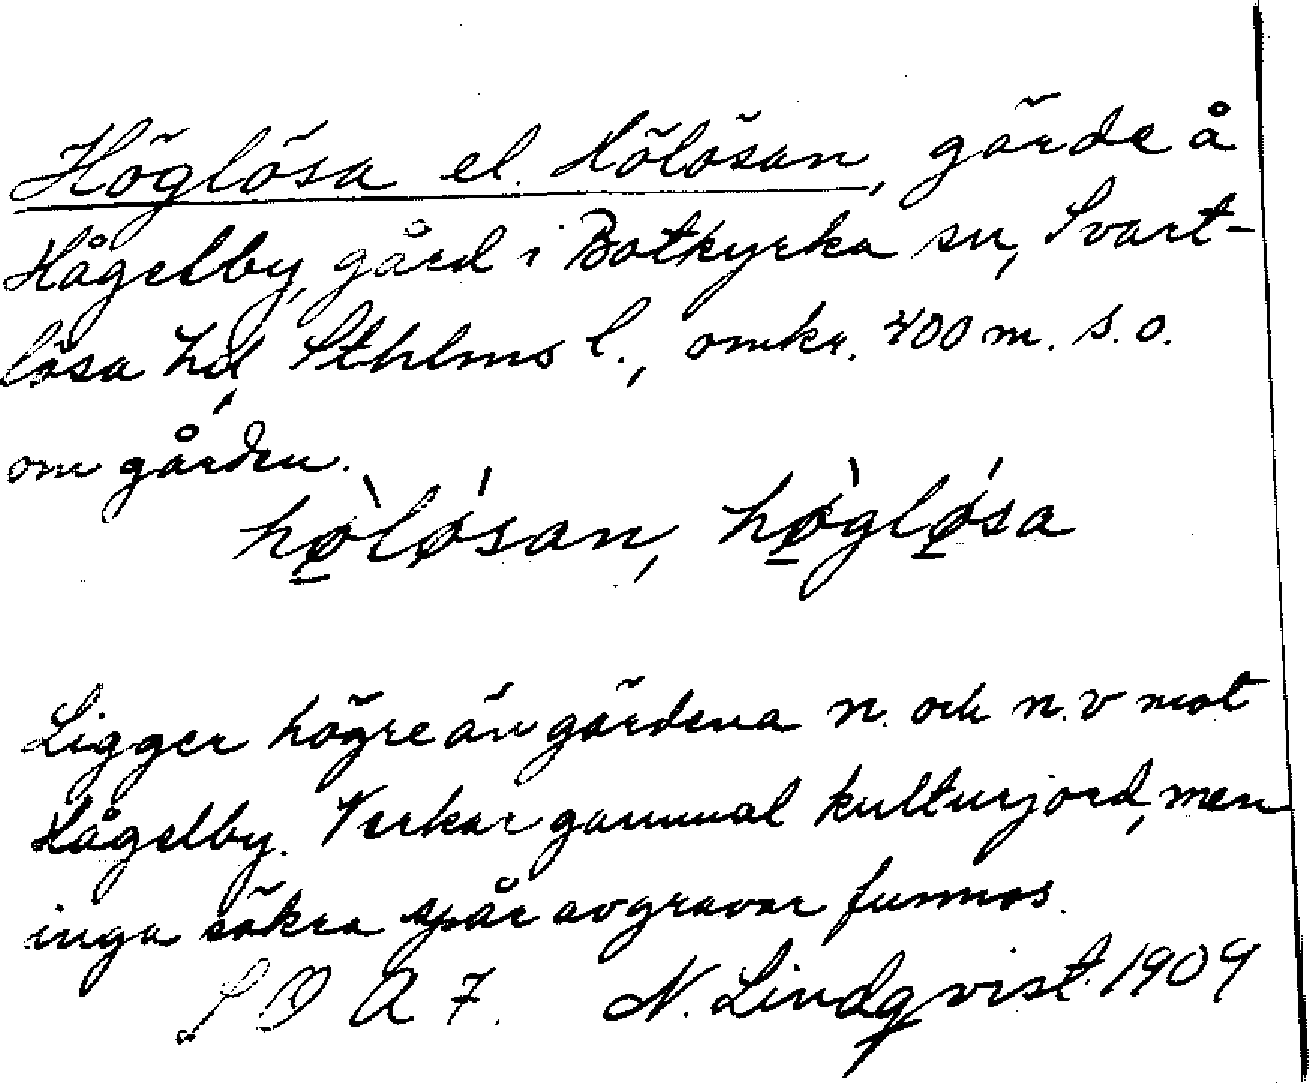 Höglösa el. Hölösan, gärde å
Hågelby, gård i Botkyrka sn, Svart-
lösa hd, Sthlms l., omkr. 400 m. s.o.
om gården.
hø̀løsan, hø̀gløsa
Ligger högre än gärdena n. och n.v mot
Hågelby. Verkar gammal kulturjord, men
inga säkra spår av gravar funnos.
S O A 7. N. Lindqvist. 1909